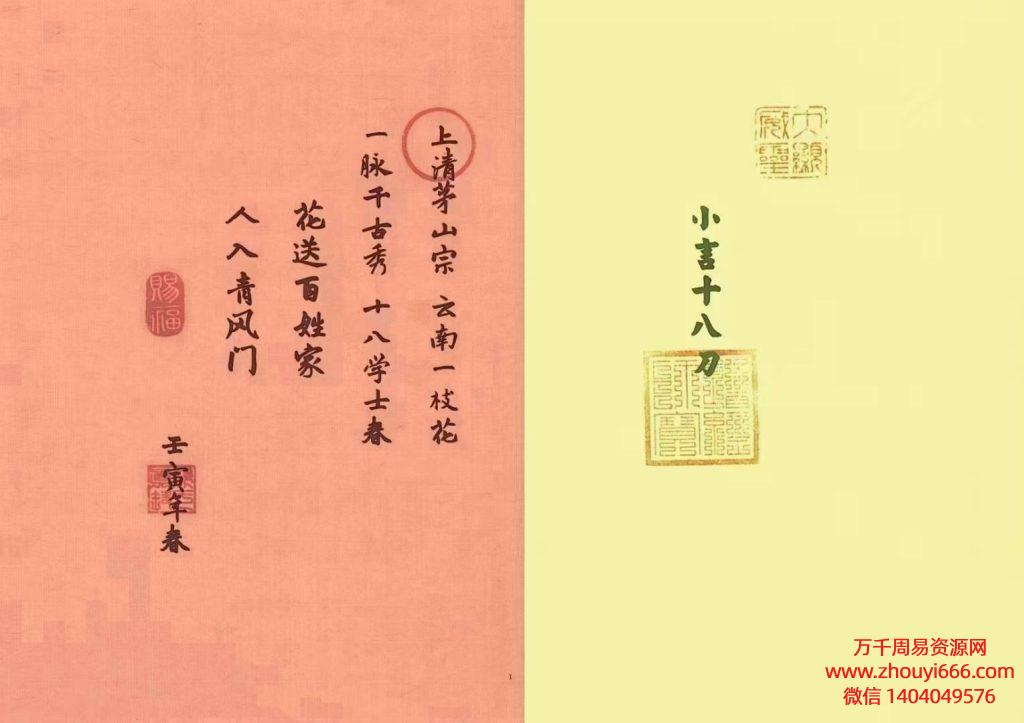 上清茅山宗 云南一枝花
一脉千古秀 十八学士春
花送百姓家
人入青风门
賜福
壬寅年春
1
大顯威靈
小言十八刀
万千周易资源网
www.zhouyi666.com
微信 1404049576